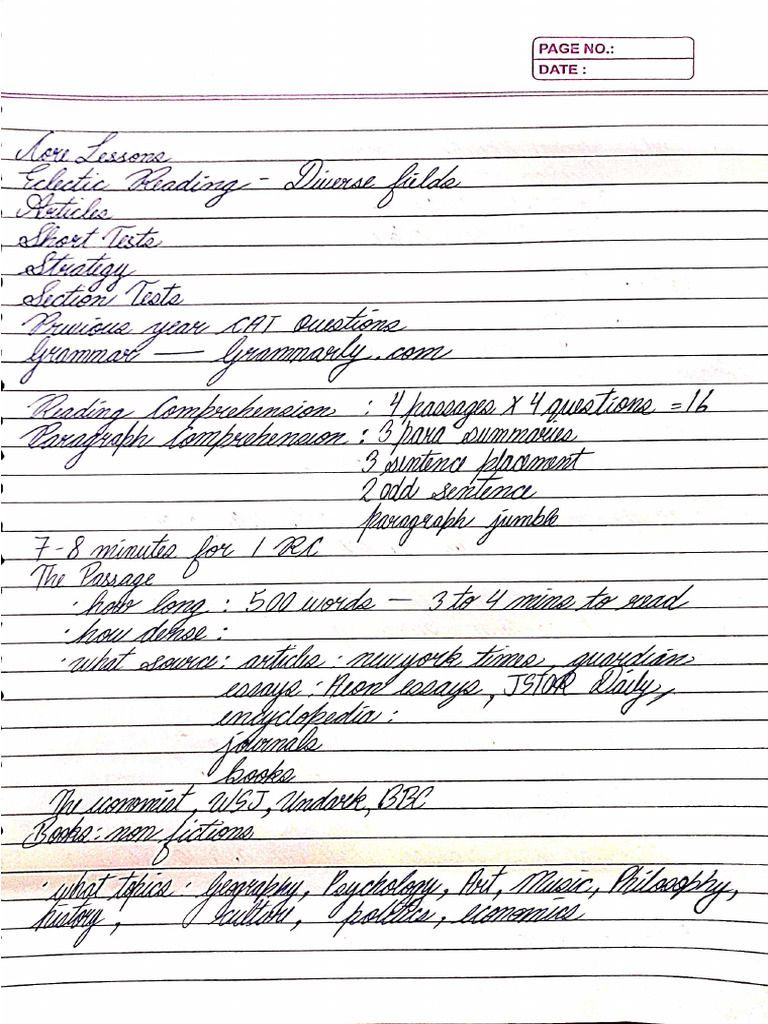 PAGE NO.:
DATE :
Core Lessons
Eclectic Reading - Diverse fields
Articles
Short Tests
Strategy
Section Tests
Previous year CAT Questions
Grammar — Grammarly.com
Reading Comprehension : 4 passages x 4 questions = 16
Paragraph Comprehension : 3 para summaries
3 sentence placement
2 odd sentence
paragraph jumble
7-8 minutes for 1 RC
The Passage
· how long : 500 words — 3 to 4 mins to read
· how dense :
· what source : articles : new york times, guardian
essays : Aeon essays, JSTOR Daily,
encyclopedia :
journals
books
The economist, WSJ, Undark, BBC
Books : non fictions
· what topics : Geography, Psychology, Art, Music, Philosophy,
history, culture, politics, economics